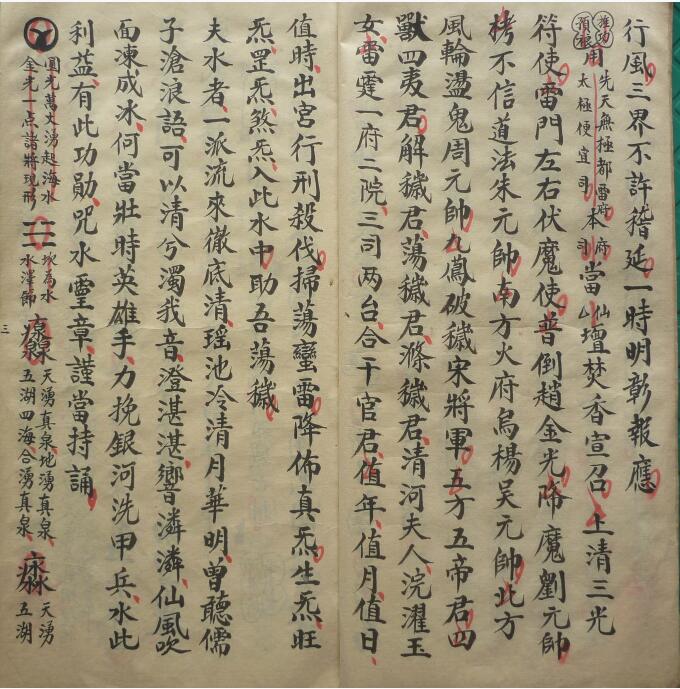 行風三界不許稽延一時明彰報應
用 先天無極都雷府 太極便宜司 本 府 司 當 仙 壇焚香宣召 上清三光
符使雷門左右伏魔使普倒趙金光降魔劉元帥
栲不信道法朱元帥南方火府烏楊吳元帥北方
風輪盪鬼周元帥九鳳破穢宋將軍五方五帝君四
獸四夷君解穢君蕩穢君滌穢君清河夫人浣濯玉
女雷霆一府二院三司两台合干官君值年值月值日
值時出宮行刑殺伐掃蕩蠻雷降佈真炁生炁旺
炁罡炁煞炁入此水中助吾蕩穢
夫水者一派流來徹底清瑶池冷清月華明曾聽儒
子滄浪語可以清兮濁我音澄湛湛響潾潾仙風吹
面凍成冰何當壯時英雄手力挽銀河洗甲兵水此
利益有此功勛咒水靈章謹當持誦
圓光萬丈湧起海水 金光一点諸將現形 坎為水 水澤節 天湧真泉地湧真泉 五湖四海合湧真泉 天湧 五湖
三